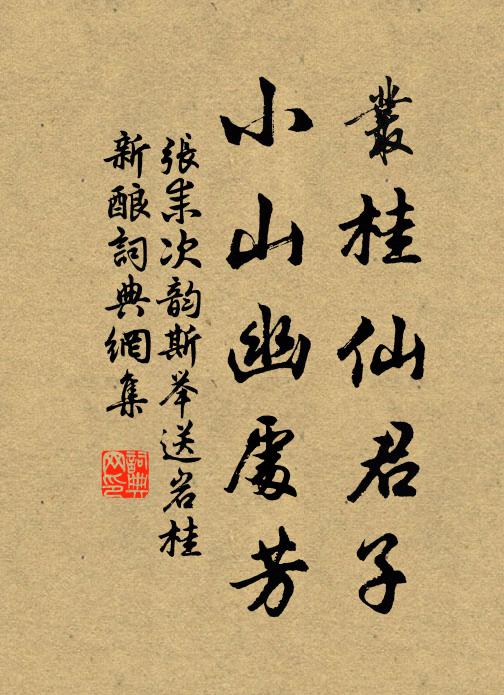 叢桂仙君子
小山幽處芳
張耒次韵斯举送岩桂
新酿詞典網集
詞典网印